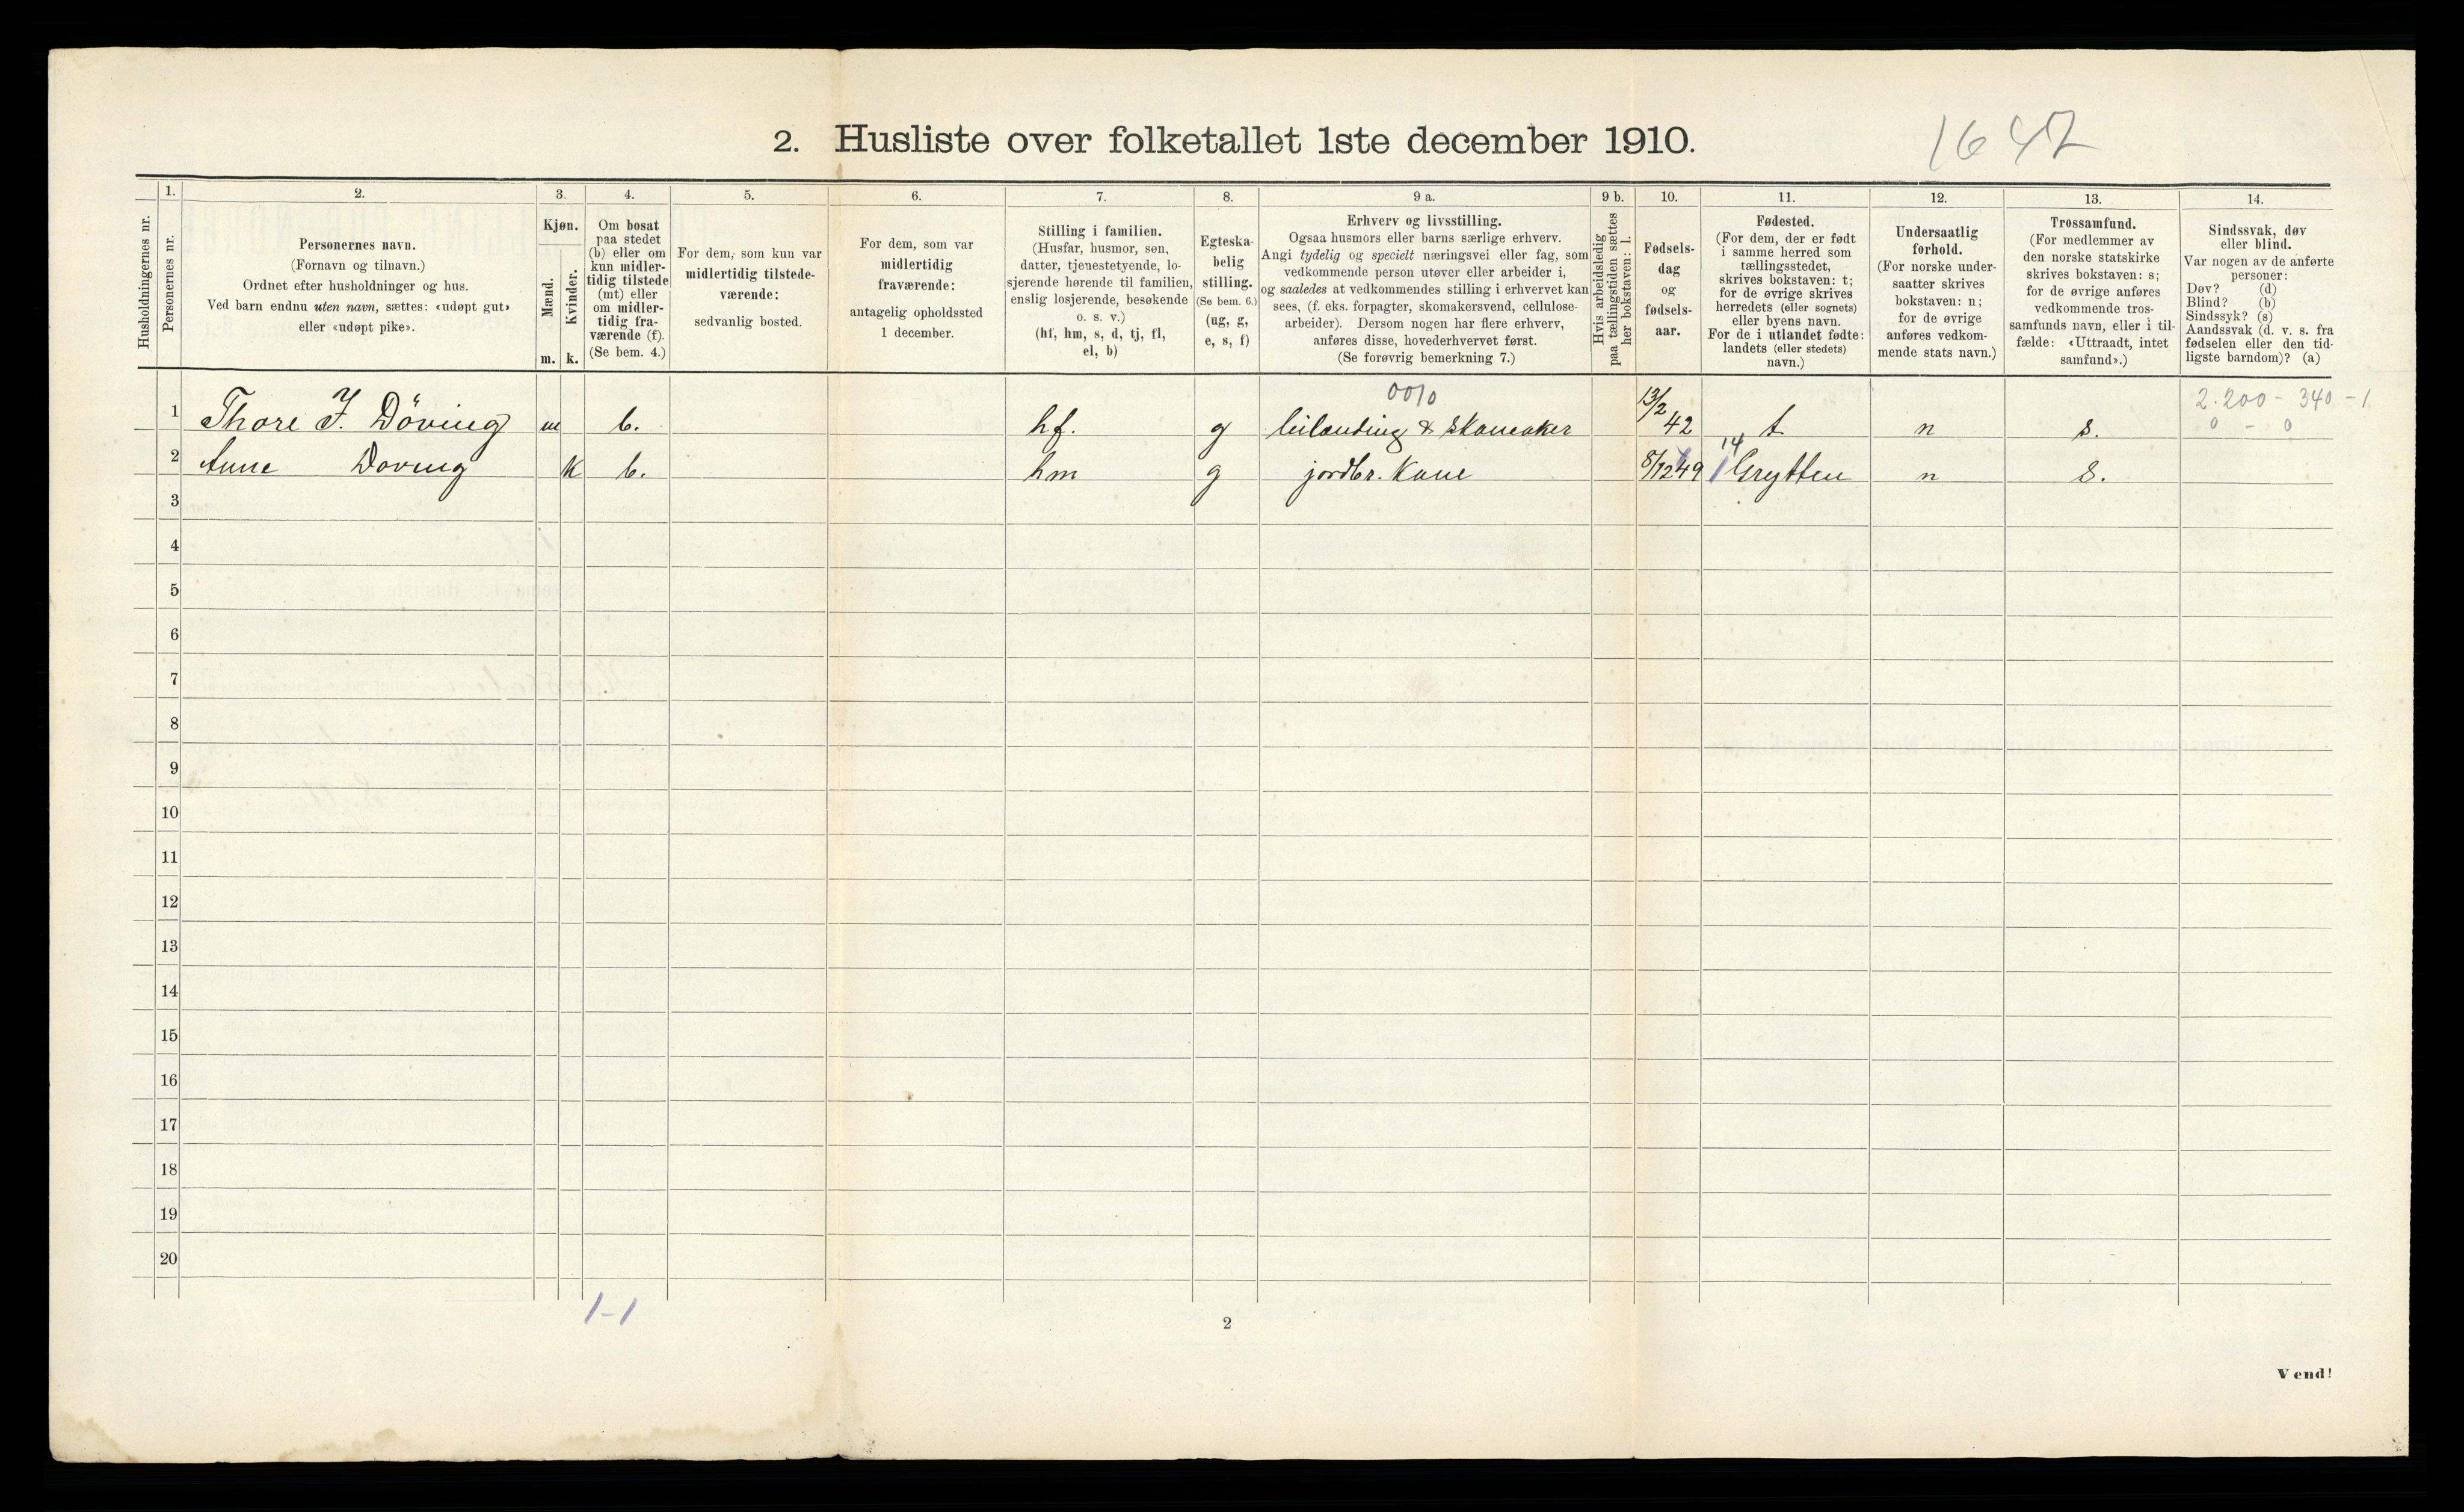 1647
2. Husliste over folketallet 1ste december 1910.
1. 2. 3. 4. 5. 6. 7. 8. 9 a. 9 b. 10. 11. 12. 13. 14.
Husholdningernes nr.
Personernes nr.
Personernes navn.
(Fornavn og tilnavn.)
Ordnet efter husholdninger og hus.
Ved barn endnu uten navn, sættes: «udøpt gut»
eller «udøpt pike».
Kjøn.
Mænd.
Kvinder.
m. k.
Om bosat
paa stedet
(b) eller om
kun midler-
tidig tilstede
(mt) eller
om midler-
tidig fra-
værende (f).
(Se bem. 4.)
For dem, som kun var
midlertidig tilstede-
værende:
sedvanlig bosted.
For dem, som var
midlertidig
fraværende:
antagelig opholdssted
1 december.
Stilling i familien.
(Husfar, husmor, søn,
datter, tjenestetyende, lo-
sjerende hørende til familien,
enslig losjerende, besøkende
o. s. v.)
(hf, hm, s, d, tj, fl,
el, b)
Egteska-
belig
stilling.
(Se bem. 6.)
(ug, g,
e, s, f)
Erhverv og livsstilling.
Ogsaa husmors eller barns særlige erhverv.
Angi tydelig og specielt næringsvei eller fag, som
vedkommende person utøver eller arbeider i,
og saaledes at vedkommendes stilling i erhvervet kan
sees, (f. eks. forpagter, skomakersvend, cellulose-
arbeider). Dersom nogen har flere erhverv,
anføres disse, hovederhvervet først.
(Se forøvrig bemerkning 7.)
Hvis arbeidsledig
paa tællingstiden sættes
her bokstaven: l.
Fødsels-
dag
og
fødsels-
aar.
Fødested.
(For dem, der er født
i samme herred som
tællingsstedet,
skrives bokstaven: t;
for de øvrige skrives
herredets (eller sognets)
eller byens navn.
For de i utlandet fødte:
landets (eller stedets)
navn.)
Undersaatlig
forhold.
(For norske under-
saatter skrives
bokstaven: n;
for de øvrige
anføres vedkom-
mende stats navn.)
Trossamfund.
(For medlemmer av
den norske statskirke
skrives bokstaven: s;
for de øvrige anføres
vedkommende tros-
samfunds navn, eller i til-
fælde: «Uttraadt, intet
samfund».)
Sindssvak, døv
eller blind.
Var nogen av de anførte
personer:
Døv? (d)
Blind? (b)
Sindssyk? (s)
Aandssvak (d. v. s. fra
fødselen eller den tid-
ligste barndom)? (a)
0010
2.200 - 340 - 1
0 - 0
1 Thore J. Döving m b. hf. g leilending & Skomaker 13/2 42 t n s.
14
2 Anne Doving K b. hm g jordbr. Kone 8/12 49 Grytten n s.
3
4
5
6
7
8
9
10
11
12
13
14
15
16
17
18
19
20
1-1
2
Vend!